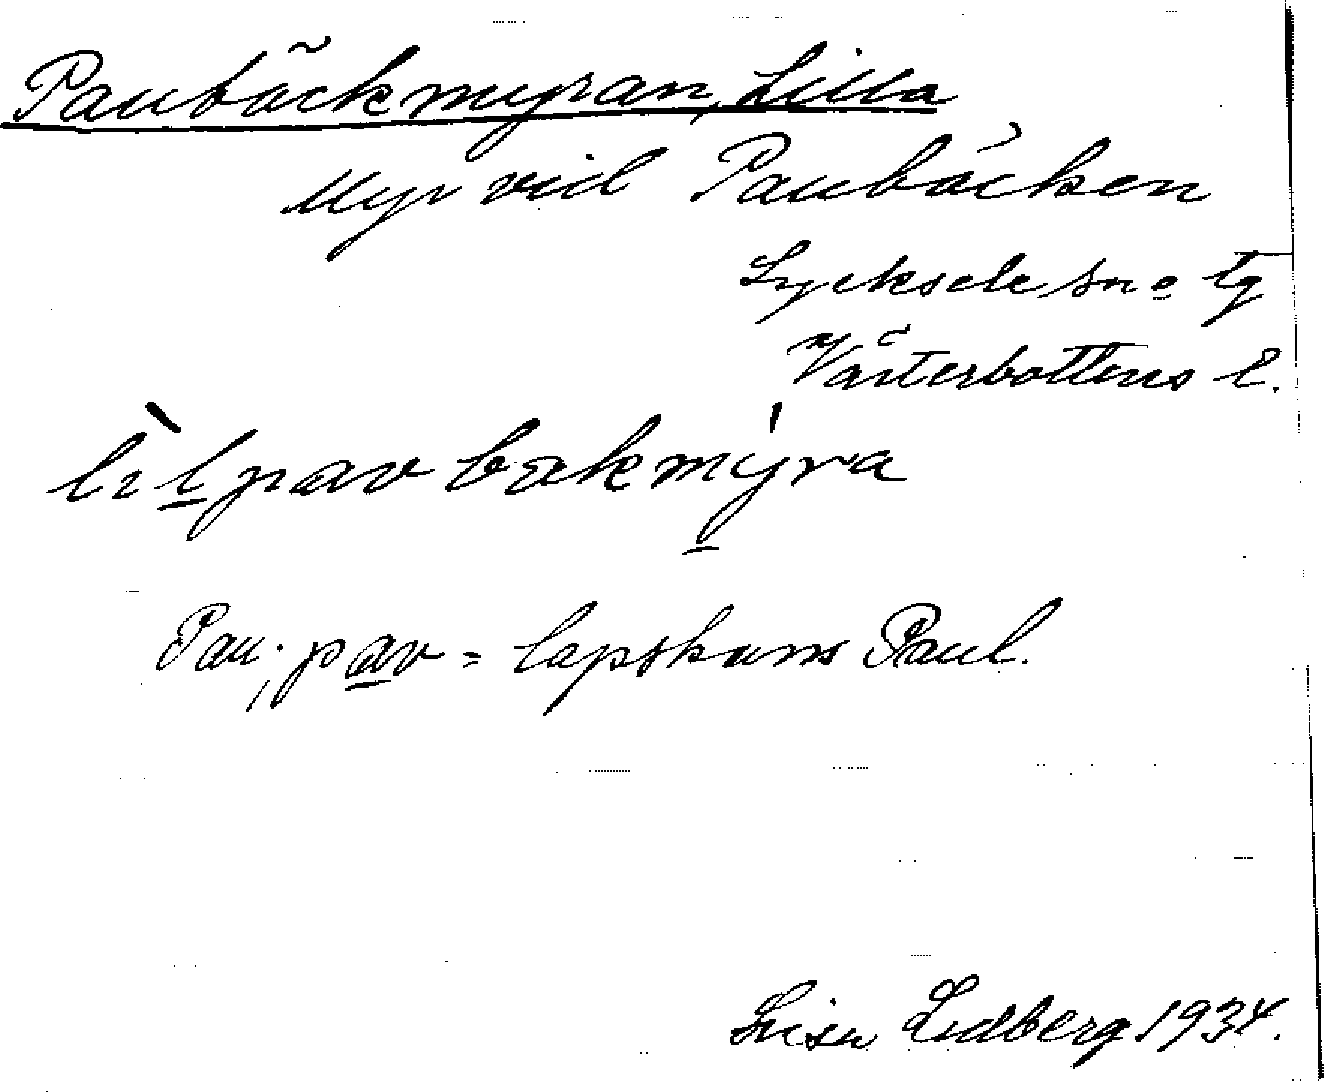 Paubäckmyran, Lilla
Myr vid Paubäcken
Lycksele sn o tg
Västerbottens l.
lìlpavbækmýra
Pau; pav = lapskans Paul.
Lisa Lidberg 1934.